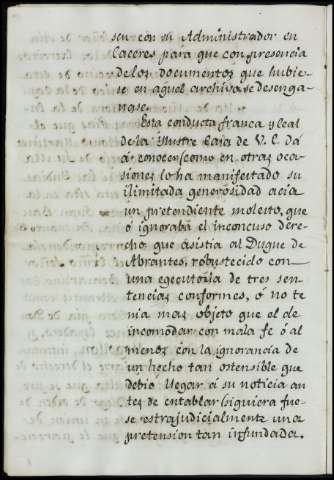 sen con su Administrador en
Caceres para que con presencia
de los documentos que hubie-
se en aquel archivo se desenga-
ñase.
Esta conducta franca y leal
de la Ilustre Casa de V. E. dá
á conocer (como en otras oca-
siones lo ha manifestado su
ilimitada generosidad acia
un pretendiente molesto, que
ó ignoraba el inconcuso dere-
cho que asistia al Duque de
Abrantes, robustecido con
una egecutoria de tres sen-
tencias conformes, ó no te
nia mas objeto que el de
incomodar con mala fe ó al
menos con la ignorancia de
un hecho tan ostensible que
debio llegar á su noticia an
tes de entablar siquiera fue-
se estrajudicialmente una
pretension tan infundada.